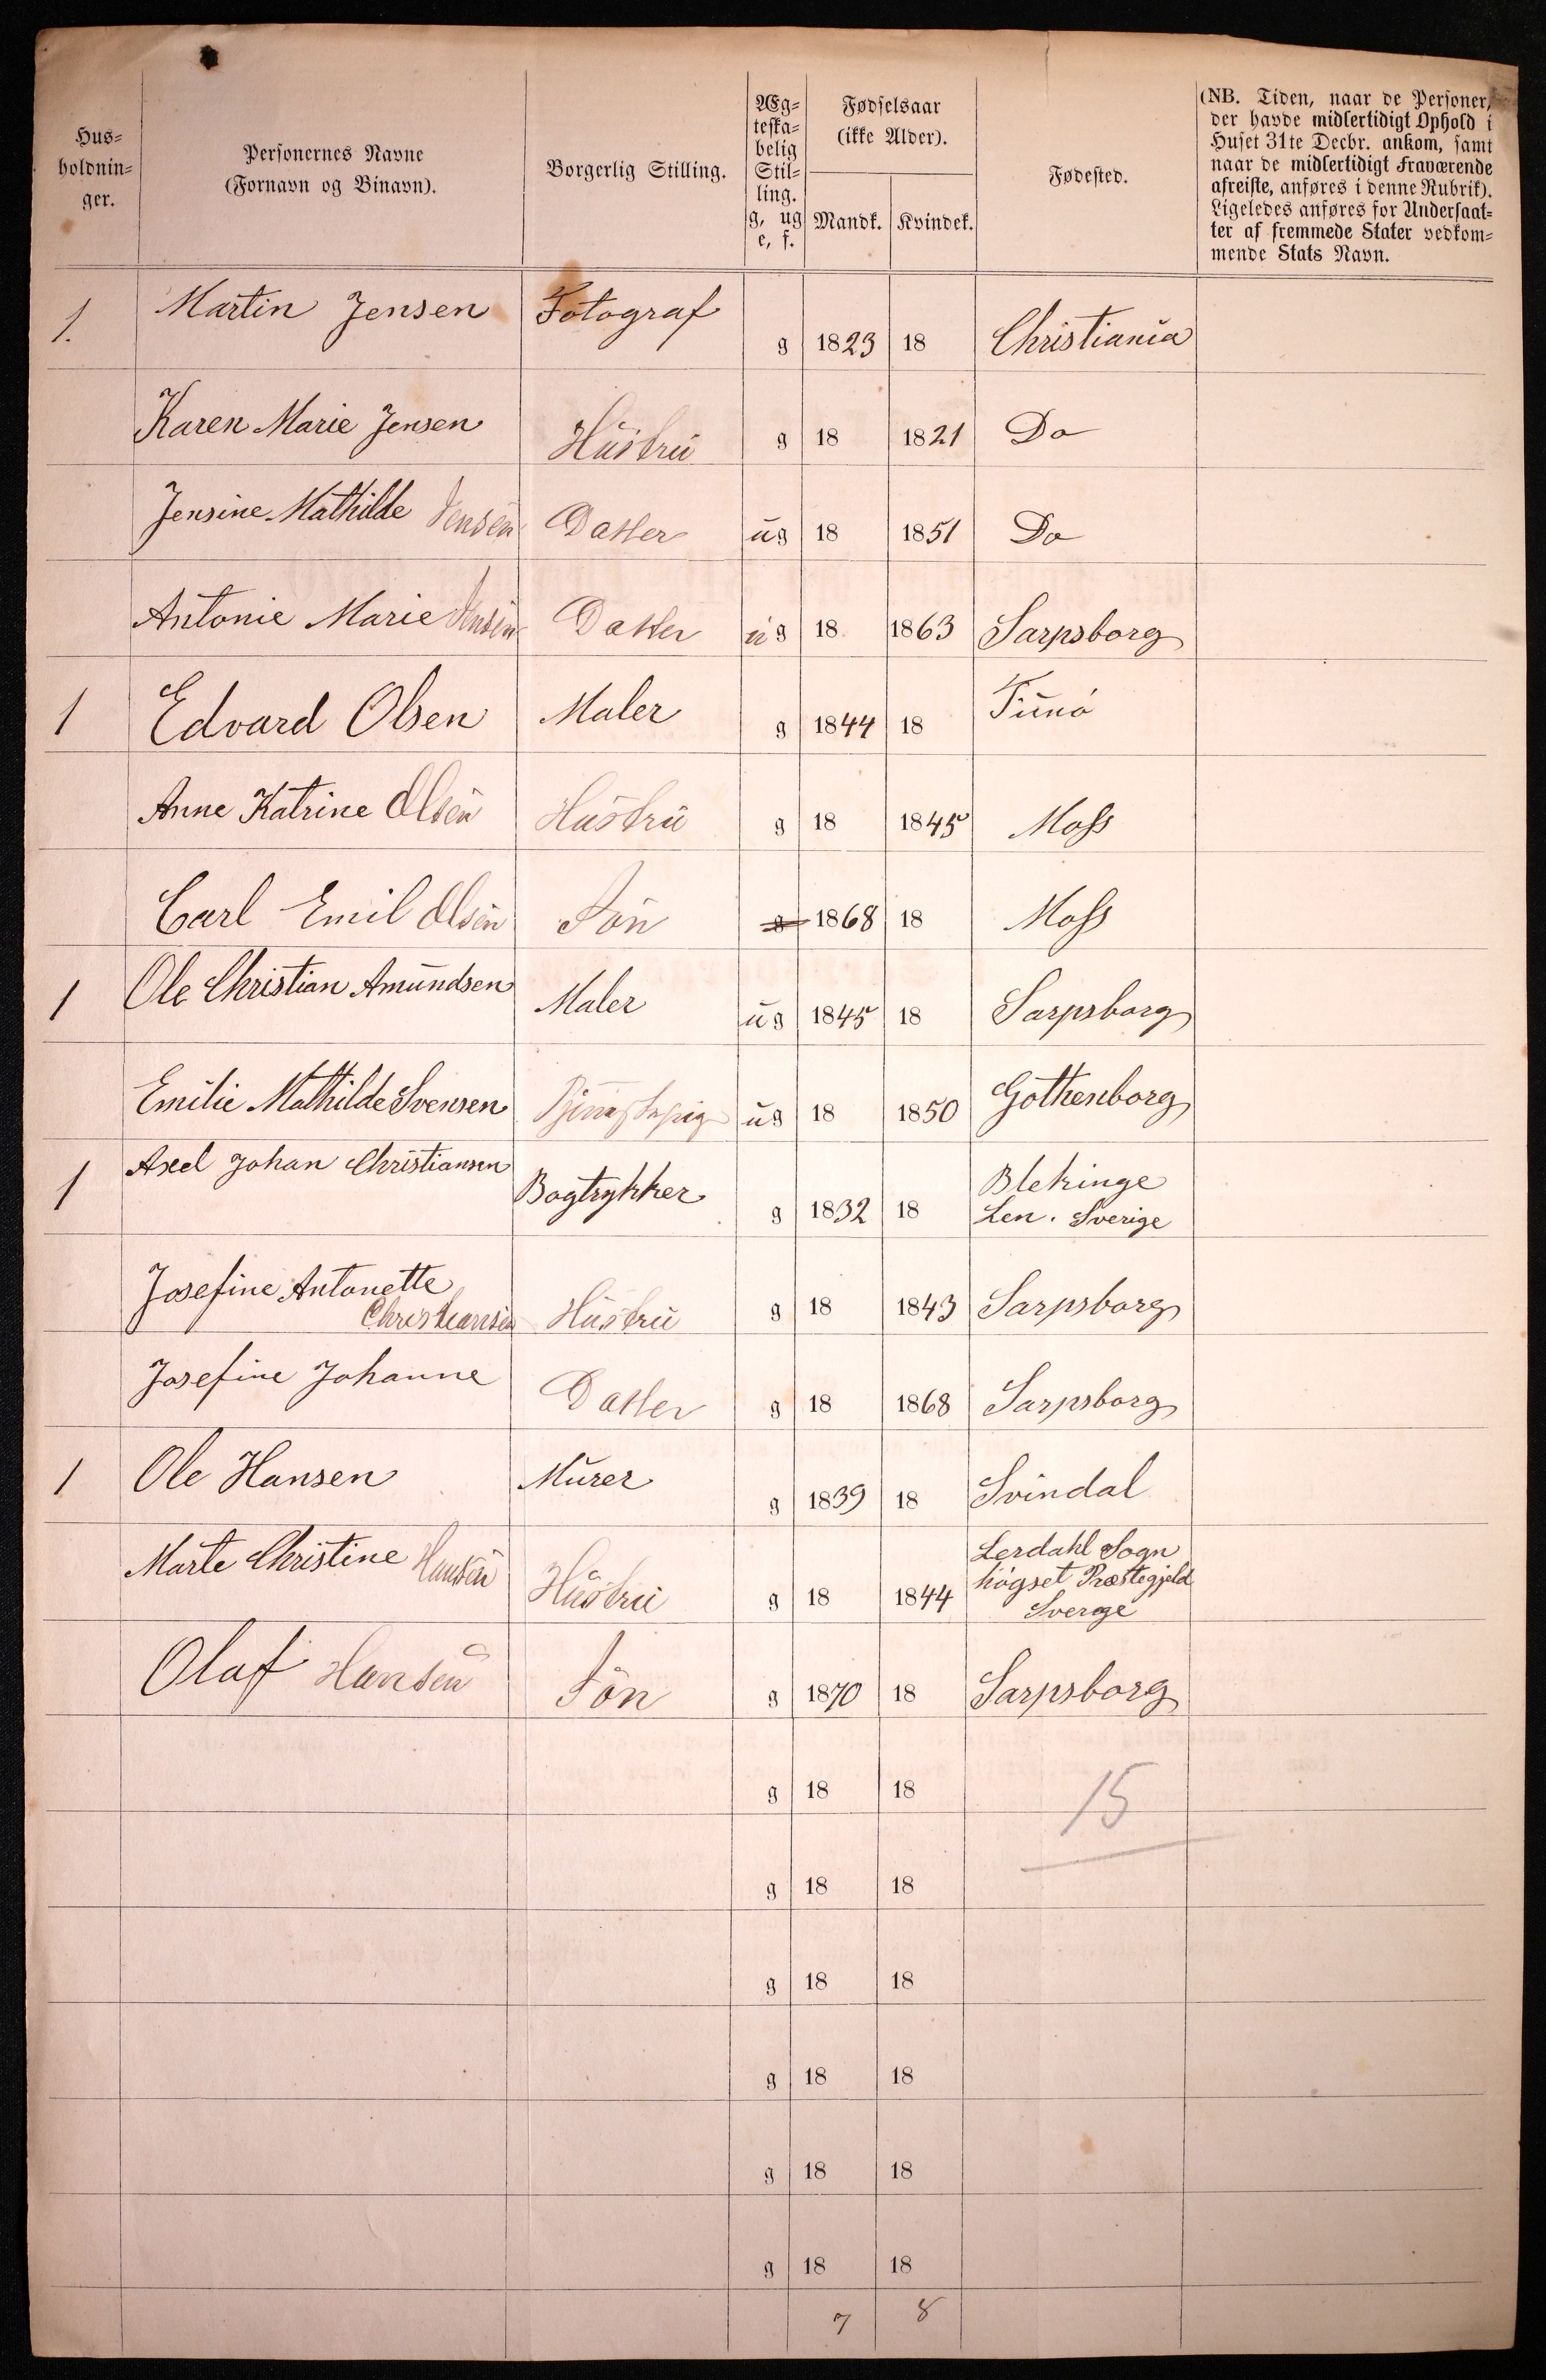 Hus-
holdnin-
ger.
Personernes Navne
(Fornavn og Binavn).
Borgerlig Stilling.
Æg-
teska-
belig
Stil-
ling.
g, ug
e, f.
Fødselsaar
(ikke Alder).
Mandk. Kvindek.
Fødested.
(NB. Tiden, naar de Personer,
der havde midlertidigt Ophold i
Huset 31te Decbr. ankom, samt
naar de midlertidigt Fraværende
afreiste, anføres i denne Rubrik).
Ligeledes anføres for Undersaat-
ter af fremmede Stater vedkom-
mende Stats Navn.
1. Martin Jensen Fotograf g 1823 18 Christiania
Karen Marie Jensen Hustru g 18 1821 Do
Jensine Mathilde Jensen Datter ug 18 1851 Do
Antonie Marie Jensen Datter ug 18 1863 Sarpsborg
1 Edvard Olsen Maler g 1844 18 Tunö
Anne Katrine Olsen Hustru g 18 1845 Moss
Carl Emil Olsen Sön g 1868 18 Moss
1 Ole Christian Amundsen Maler ug 1845 18 Sarpsborg
Emilie Mathilde Svensen ug 18 1850 Gothenborg
1 Axel Johan Christiansen Bogtrykker g 1832 18 Blekinge
Len. Sverige
Josefine Antonette
Christiansen Hustru g 18 1843 Sarpsborg
Josefine Johanne Datter g 18 1868 Sarpsborg
1 Ole Hansen Murer g 1839 18 Svindal
Marte Christine Hansen Hustru g 18 1844 Lerdahl Sogn
högset Præstegjeld
Sverge
Olaf Hansen Sön g 1870 18 Sarpsborg
g 18 18
15
g 18 18
g 18 18
g 18 18
g 18 18
g 18 18
7 8